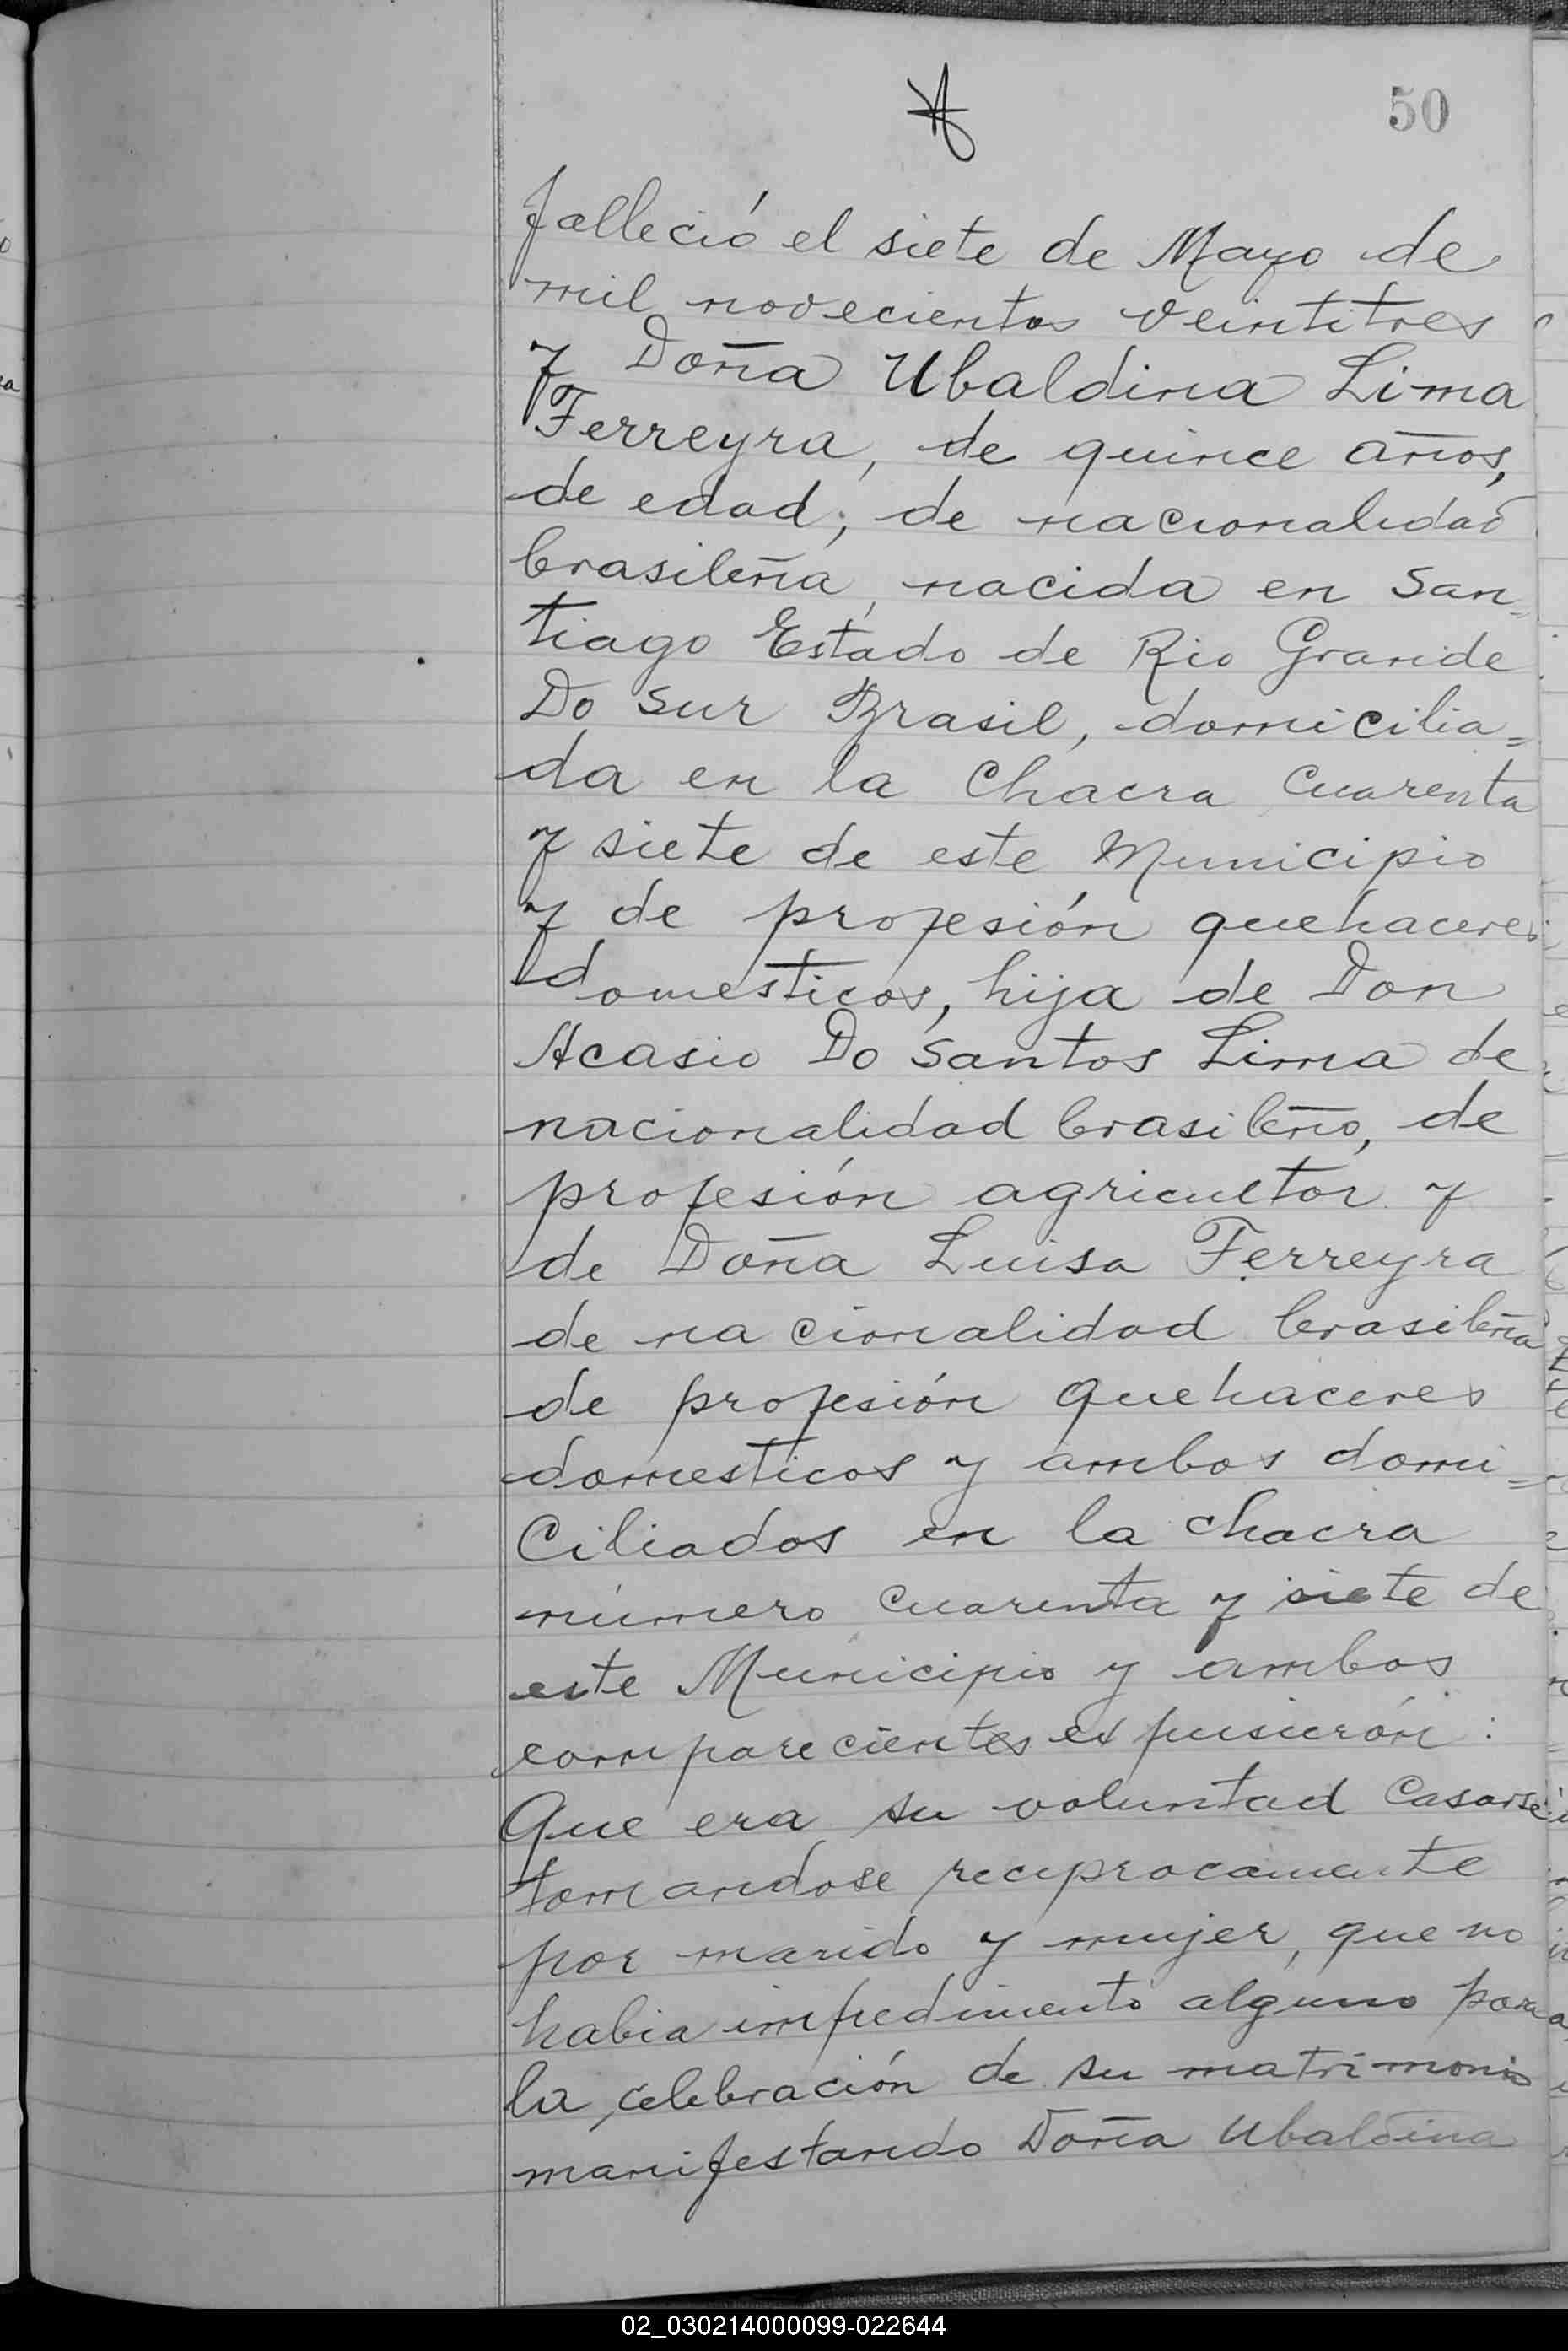 50
falleció el siete de Mayo de
mil novecientos veintitres
y Doña Ubaldina Lima
Ferreyra, de quince años,
de edad, de nacionalidad
brasileña, nacida en San-
tiago Estado de Rio Grande
Do Sur Brasil, domicilia=
da en la Chacra Cuarenta
y siete de este Municipio
y de profesión quehaceres
domesticos, hija de Don
Acasio Do Santos Lima de
nacionalidad brasileño, de
profesión agricultor y
de Doña Luisa Ferreyra
de nacionalidad brasileña
de profesión quehaceres
domesticos y ambos domi=
Ciliados en la chacra
número cuarenta y siete de
este Municipio y ambos
comparecientes expusierón:
Que era su voluntad Casarse
tomandose reciprocamente
por marido y mujer, que no
habia impedimento alguno para
la celebración de su matrimonio
manifestando Doña Ubaldina
02_030214000099-022644